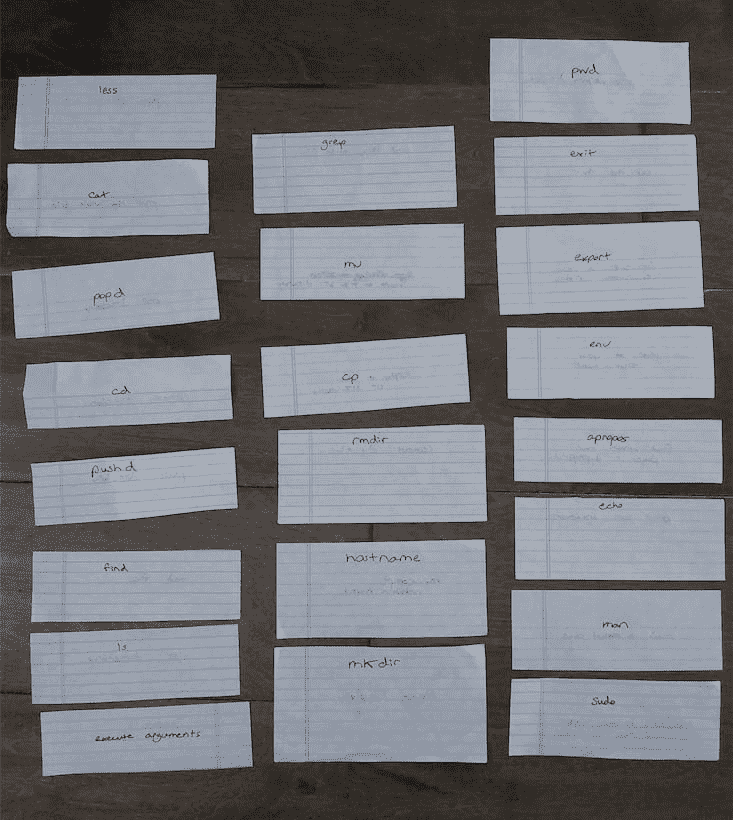 less
cat
popd
cd
pushd
find
ls
execute arguments
grep
mv
cp
rmdir
hostname
mkdir
pwd
exit
export
env
apropos
echo
man
sudo